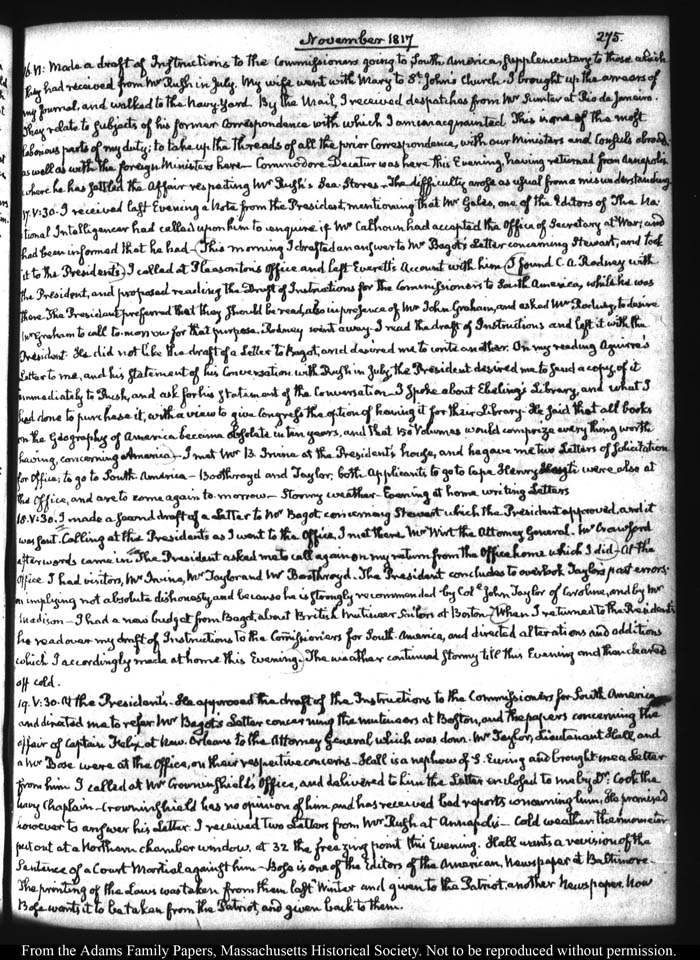 November 1817
275.
16. VI: Made a draft of Instructions to the Commissioners going to South America, supplementary to those which
they had received from Mr Rush in July. My wife went with Mary to St. John's Church. I brought up the arrears of
my Journal, and walked to the Navy-Yard. By the Mail, I received despatches from Mr Sumter at Rio de Janeiro.
They relate to subjects of his former correspondence with which I am unacquainted. This is one of the most
laborious parts of my duty; to take up the threads of all the prior Correspondence, with our Ministers and Consuls abroad,
as well as with the foreign Ministers here— Commodore Decatur was here this Evening, having returned from Annapolis
where he has settled the Affair respecting Mr Rush's Sea-Stores. The difficulty arose as usual from a misunderstanding.
17. V:30. I received last Evening a Note from the President, mentioning that Mr Gales, one of the Editors of The Na-
tional Intelligencer had called upon him to enquire if Mr Calhoun had accepted the Office of Secretary at War; and
had been informed that he had— This morning I drafted an answer to Mr Bagot's Letter concerning Stewart, and took
it to the Presidents. I called at Pleasonton's Office and left Everett's Account with him. I found C. A. Rodney with
the President, and proposed reading the Draft of Instructions for the Commissioners to South America, while he was
there. The President preferred that they should be read, also in presence of Mr John Graham, and asked Mr Rodney, to desire
Mr Graham to call to-morrow for that purpose. Rodney went away. I read the draft of Instructions and left it with the
President. He did not like the draft of a Letter to Bagot, and desired me to write another. On my reading Aguirre's
Letter to me, and his statement of his Conversation with Rush in July, the President desired me to send a copy of it
immediately to Rush, and ask for his statement of the Conversation— I spoke about Ebeling's Library, and what I
had done to purchase it, with a view to give Congress the option of having it for their Library— He said that all books
on the Geography of America became obsolete in ten years, and that 150 Volumes would comprize every thing worth
having, concerning America— I met Mr B. Irvine at the President's house, and he gave me two Letters of solicitation
for Office; to go to South America— Boothroyd and Taylor, both Applicants to go to Cape Henry Hayti were also at
the Office, and are to come again to morrow— Stormy weather— Evening at home writing Letters
18. V:30. I made a second draft of a Letter to Mr Bagot concerning Stewart which the President approved, and it
was sent. Calling at the Presidents as I went to the Office, I met there Mr Wirt the Attorney General. Mr Crawford
afterwards came in. The President asked me to call again on my return from the Office home which I did— At the
Office I had visitors, Mr Irvine, Mr Taylor and Mr Boothroyd. The President concludes to overlook Taylor's past errors:
as implying not absolute dishonesty, and because he is strongly recommended by Coll John Taylor of Caroline, and by Mr
Madison— I had a new budget from Bagot, about British Mutineer Sailors at Boston. When I returned to the Presidents
he read over my draft of Instructions to the Commissioners for South America, and directed alterations and additions
which I accordingly made at home this Evening. The weather continued stormy till this Evening and then cleared
off cold.
19. V:30. At the Presidents. He approved the draft of the Instructions to the Commissioners for South America
and directed me to refer Mr Bagot's Letter concerning the mutineers at Boston, and the papers concerning the
affair of Captain Felix at New Orleans to the Attorney General which was done. Mr Taylor, Lieutenant Hall, and
a Mr Bose were at the Office, on their respective concerns— Hall is a nephew of S. Ewing and brought me a Letter
from him I called at Mr Crowninshield's Office, and delivered to him the Letter enclosed to me by Dr. Cook the
navy Chaplain— Crowninshield has no opinion of him, and has received bad reports concerning him. He promised
however to answer his Letter. I received two Letters from Mr Rush at Annapolis— Cold weather. Thermometer
put out at a Northern chamber window, at 32 the freezing point this Evening. Hall wants a revision of the
Sentence of a Court Martial against him— Bose is one of the Editors of the American, Newspaper at Baltimore.
The printing of the Laws was taken from them last Winter and given to the Patriot, another Newspaper. Now
Bose wants it to be taken from the Patriot, and given back to them.
From the Adams Family Papers, Massachusetts Historical Society. Not to be reproduced without permission.